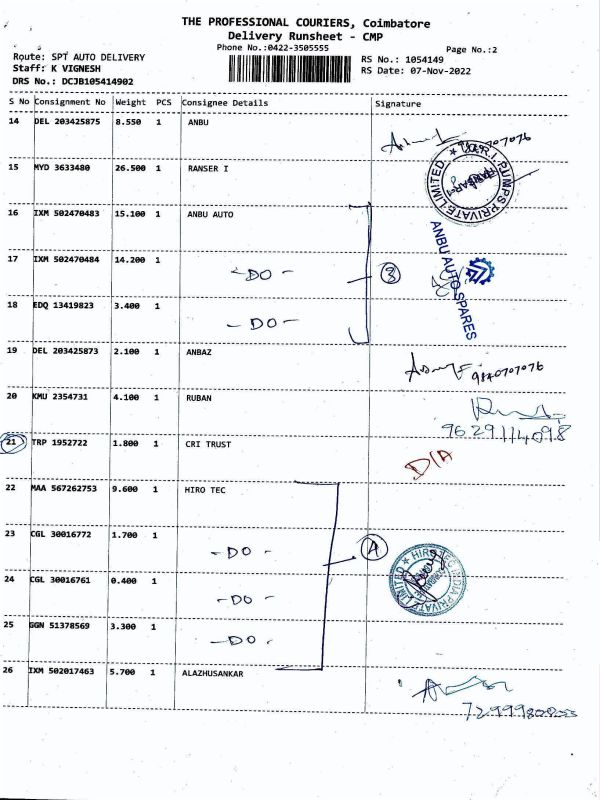 THE PROFESSIONAL COURIERS, Coimbatore
Delivery Runsheet - CMP
Phone No.:0422-3505555
Page No.:2
Route: SPT AUTO DELIVERY
RS No.: 1054149
Staff: K VIGNESH
RS Date: 07-Nov-2022
DRS No.: DCJB105414902
S No Consignment No Weight PCS Consignee Details Signature
14 DEL 203425875 8.550 1 ANBU
15 MYD 3633480 26.500 1 RANSER I
16 IXM 502470483 15.100 1 ANBU AUTO
17 IXM 502470484 14.200 1 -DO- 3
ANBU AUTO SPARES
18 EDQ 13419823 3.400 1 -DO-
19 DEL 203425873 2.100 1 ANBAZ
20 KMU 2354731 4.100 1 RUBAN
9629114098
21 TRP 1952722 1.800 1 CRI TRUST D/A
22 MAA 567262753 9.600 1 HIRO TEC
23 CGL 30016772 1.700 1 -DO- 4
24 CGL 30016761 0.400 1 -DO-
25 GGN 51378569 3.300 1 -DO-
26 IXM 502017463 5.700 1 ALAZHUSANKAR